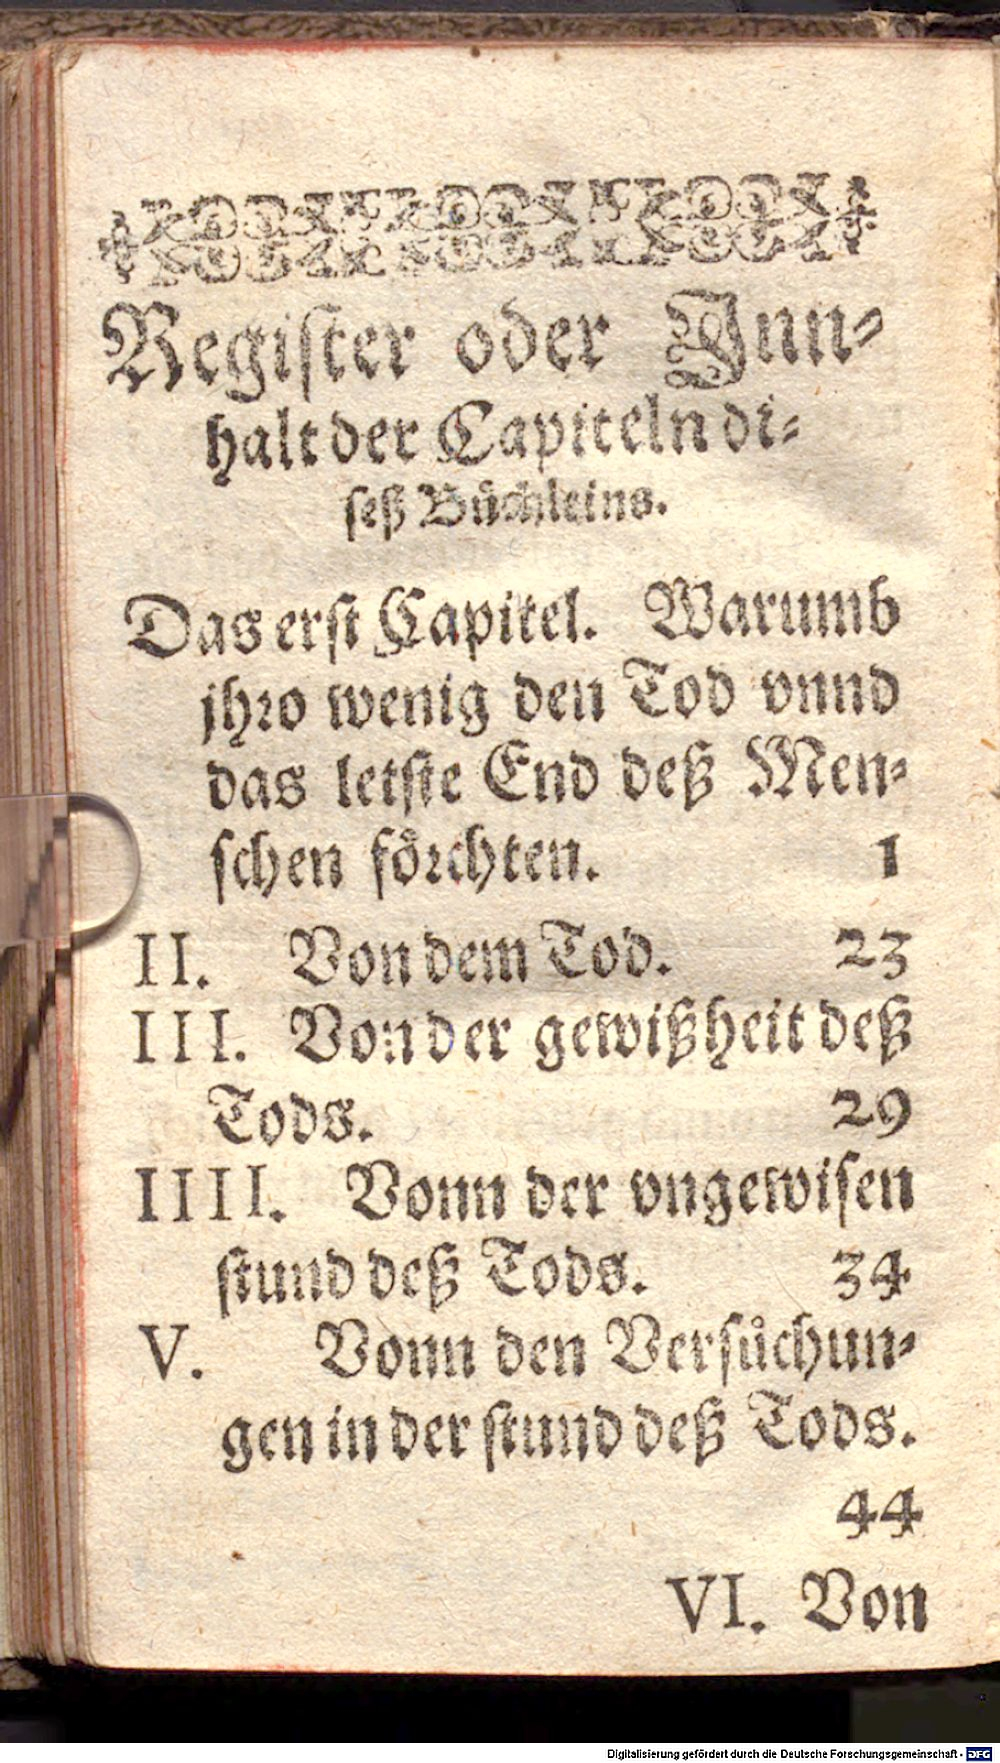 Register oder Inn-
halt der Capiteln di-
seß Büchleins.
Das erst Capitel. Warumb
jhro wenig den Tod vnnd
das letste End deß Men-
schen förchten. 1
II. Von dem Tod. 23
III. Von der gewißheit deß
Tods. 29
IIII. Vonn der vngewisen
stund deß Tods. 34
V. Vonn den Versůchun-
gen in der stund deß Tods.
44
VI. Von
Digitalisierung gefördert durch die Deutsche Forschungsgemeinschaft - DFG